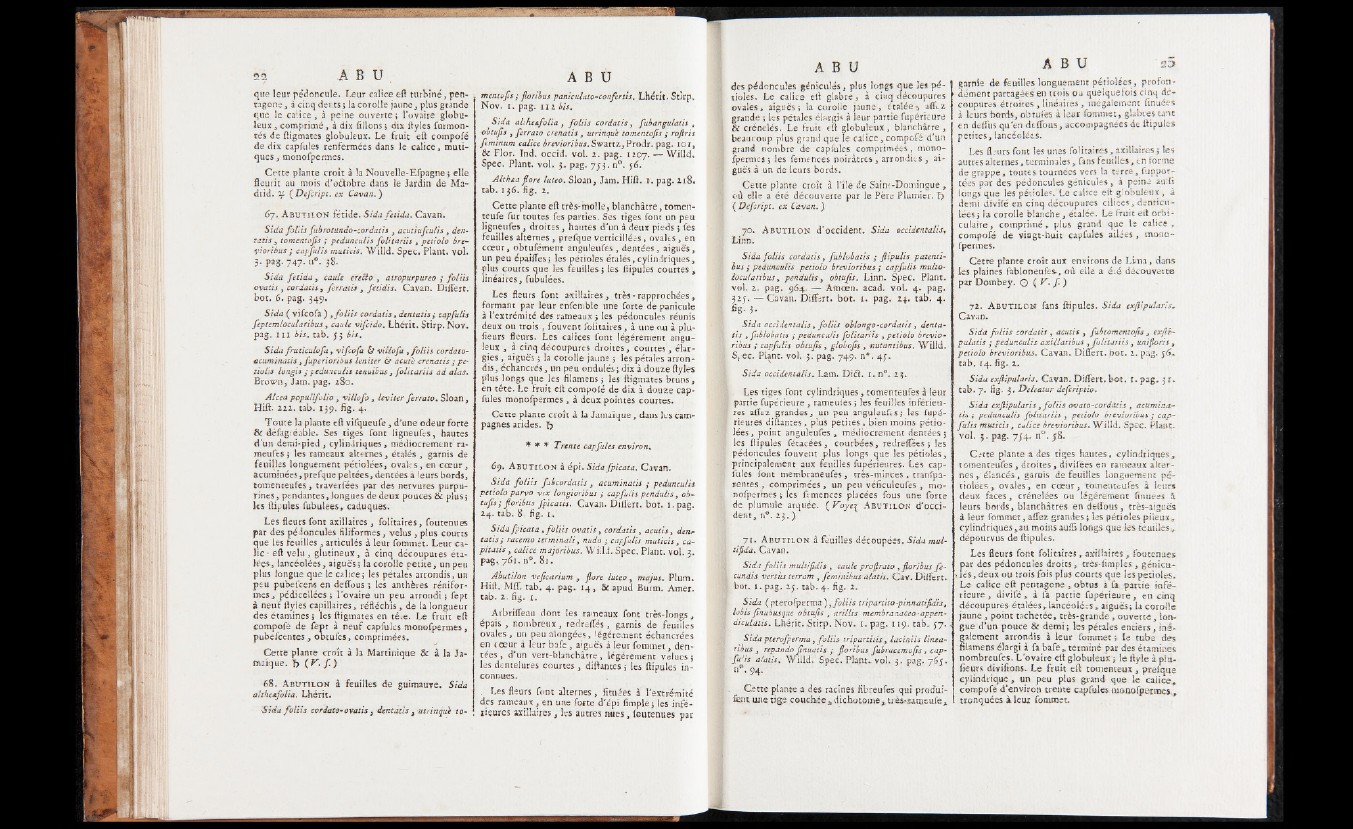 22 A B U
que leur pédoncule. Leur calice eſt turbiné, pen-
tagone, à cinq dents; la corolle jaune, plus grande
que le calice, à peine ouverte; l'ovaire globu-
leux, comprimé, à dix ſillons; dix ſtyles ſurmon-
tés de ſtigmates globuleux. Le fruit eſt compoſé
de dix capſules renfermées dans le calice, muti-
ques, monoſpermes.
Cette plante croît à la Nouvelle-Eſpagne; elle
fleurit au mois d'octobre dans le Jardin de Ma-
drid. ♃ (Deſcript. ex Cavan.)
67. ABUTILON fétide. Sida fœtida. Cavan.
Sida foliis ſubrotundo-cordatis, acutiuſculis, den-
tatis, tomentoſis; pedunculis ſolitariis, petiolo bre-
vioribus; capſulis muticis. Willd. Spec. Plant. vol.
3. pag. 747. n°. 38.
Sida fetida, caule erecto, atropurpureo; foliis
ovatis, cordatis, ſerratis, fetidis. Cavan. Diſſert.
bot. 6. pag. 349.
Sida (viſcoſa), foliis cordatis, dentatis; capſulis
ſeptemlocularibus, caule viſcido. Lhérit. Stirp. Nov.
pag. 111 bis. tab. 53 bis.
Sida fruticuloſa, viſcoſa & villoſa, foliis cordato-
acuminatis, ſuperioribus leniter & acutè crenatis; pe-
tiolis longis; pedunculis tenuibus, ſolitariis ad alas.
Brown, Jam. pag. 280.
Alcea populifolio, villoſo, leviter ſerrato. Sloan,
Hiſt. 222. tab. 139. fig. 4.
Toute la plante eſt viſqueuſe, d'une odeur forte
& déſagréable. Ses tiges ſont ligneuſes, hautes
d'un demi-pied, cylindriques, médiocrement ra-
meuſes; les rameaux alternes, étalés, garnis de
feuilles longuement pétiolées, ovales, en cœur,
acuminées, preſque peltées, dentées à leurs bords,
tomenteuſes, traverſées par des nervures purpu-
rines, pendantes, longues de deux pouces & plus;
les ſtipules ſubulées, caduques.
Les fleurs ſont axillaires, ſolitaires, ſoutenues
par des pédoncules filiformes, velus, plus courts
que les feuilles, articulés à leur ſommet. Leur ca-
lice eſt velu, glutineux, à cinq découpures éta-
lées, lancéolées, aiguës; la corolle petite, un peu
plus longue que le calice; les pétales arrondis, un
peu pubeſcens en deſſous; les anthères rénifor-
mes, pédicellées; l'ovaire un peu arrondi; ſept
à neuf ſtyles capillaires, réfléchis, de la longueur
des étamines; les ſtigmates en tête. Le fruit eſt
compoſé de ſept à neuf capſules monoſpermes,
pubeſcentes, obtuſes, comprimées.
Cette plante croît à la Martinique & à la Ja-
maïque. ♄ (V. ſ.)
68. ABUTILON à feuilles de guimauve. Sida
altheæfolia. Lhérit.
Sida foliis cordato-ovatis, dentatis, utrinquè to-
A B U
mentoſis; floribus paniculato-confertis. Lhérit. Stirp.
Nov. 1. pag. 112 bis.
Sida altheæfolia, foliis cordatis, ſubangulatis,
obtuſis, ſerrato crenatis, utrinquè tomentoſis; roſtris
ſeminum calice brevioribus. Swartz, Prodr. pag. 101,
& Flor. Ind. occid. vol. 2. pag. 1207. — Willd.
Spec. Plant. vol. 3. pag. 753. n°. 56.
Althæa flore luteo. Sloan, Jam. Hiſt. 1. pag. 218.
tab. 136. fig. 2.
Cette plante eſt très-molle, blanchâtre, tomen-
teuſe ſur toutes ſes parties. Ses tiges ſont un peu
ligneuſes, droites, hautes d'un à deux pieds; ſes
feuilles alternes, preſque verticillées, ovales, en
cœur, obtuſément anguleuſes, dentées, aiguës,
un peu épaiſſes; les pétioles étalés, cylindriques,
plus courts que les feuilles; les ſtipules courtes,
linéaires, ſubulées.
Les fleurs ſont axillaires, très-rapprochées,
formant par leur enſemble une ſorte de panicule
à l'extrémité des rameaux; les pédoncules réunis
deux ou trois, ſouvent ſolitaires, à une ou à plu-
ſieurs fleurs. Les calices ſont légérement angu-
leux, à cinq découpures droites, courtes, élar-
gies, aiguës; la corolle jaune; les pétales arron-
dis, échancrés, un peu ondulés; dix à douze ſtyles
plus longs que les filamens; les ſtigmates bruns,
en tête. Le fruit eſt compoſé de dix à douze cap-
ſules monoſpermes, à deux pointes courtes.
Cette plante croît à la Jamaïque, dans les cam-
pagnes arides. ♄
* * * Trente capſules environ.
69. ABUTILON à épi. Sida ſpicata. Cavan.
Sida foliis ſubcordatis, acuminatis; pedunculis
petiolo parvo vix longioribus; capſulis pendulis, ob-
tuſis; floribus ſpicatis. Cavan. Diſſert. bot. 1. pag.
24. tab. 8. fig. 1.
Sida ſpicata, foliis ovatis, cordatis, acutis, den-
tatis; racemo terminali, nudo; capſulis muticis, ca-
pitatis, calice majoribus. Willd. Spec. Plant. vol. 3.
pag. 761. n°. 81.
Abutilon veſicarium, flore luteo, majus. Plum.
Hiſt. Mſſ. tab. 4. pag. 14, & apud Burm. Amer.
tab. 2. fig. 1.
Arbriſſeau dont les rameaux ſont très-longs,
épais, nombreux, redreſſés, garnis de feuilles
ovales, un peu alongées, légérement échancrées
en cœur à leur baſe, aiguës à leur ſommet, den-
tées, d'un vert-blanchâtre, légérement velues;
les dentelures courtes, diſtantes; les ſtipules in-
connues.
Les fleurs ſont alternes, ſituées à l'extrémité
des rameaux, en une ſorte d'épi ſimple; les infé-
rieures axillaires, les autres nues, ſoutenues par
A B U
des pédoncules géniculés, plus longs que les pé-
tioles. Le calice eſt glabre, à cinq découpures
ovales, aiguës; la corolle jaune, étalée, aſſez
grande; les pétales élargis à leur partie ſupérieure
& crénelés. Le fruit eſt globuleux, blanchâtre,
beaucoup plus grand que le calice, compoſé d'un
grand nombre de capſules comprimées, mono-
ſpermes; les ſemences noirâtres, arrondies, ai-
guës à un de leurs bords.
Cette plante croît à l'île de Saint-Domingue,
où elle a été découverte par le Père Plumier. ♄
(Deſcript. ex Cavan.)
70. ABUTILON d'occident. Sida occidentalis.
Linn.
Sida foliis cordatis, ſublobatis; ſtipulis patenti-
bus; pedunculis petiolo brevioribus; capſulis multo-
locularibus, pendulis, obtuſis. Linn. Spec. Plant.
vol. 2. pag. 964. — Amœn. acad. vol. 4. pag.
325. — Cavan. Diſſert. bot. 1. pag. 24. tab. 4.
fig. 3.
Sida occidentalis, foliis oblongo-cordatis, denta-
tis, ſublobatis; pedunculis ſolitariis, petiolo brevio-
ribus; capſulis obtuſis, globoſis, nutantibus. Willd.
Spec. Plant. vol. 3. pag. 749. n°. 45.
Sida occidentalis. Lam. Dict. 1. n°. 23.
Les tiges ſont cylindriques, tomenteuſes à leur
partie ſupérieure, rameuſes; les feuilles inférieu-
res aſſez grandes, un peu anguleuſes; les ſupé-
rieures diſtantes, plus petites, bien moins pétio-
lées, point anguleuſes, médiocrement dentées;
les ſtipules ſétacées, courbées, redreſſées; les
pédoncules ſouvent plus longs que les pétioles,
principalement aux feuilles ſupérieures. Les cap-
ſules ſont membraneuſes, très-minces, tranſpa-
rentes, comprimées, un peu véſiculeuſes, mo-
noſpermes; les ſemences placées ſous une ſorte
de plumule arquée. (Voyez ABUTILON d'occi-
dent, n°. 23.)
71. ABUTILON à feuilles découpées. Sida mul-
tifida. Cavan.
Sida foliis multifidis, caule proſtrato, floribus fe-
cundis verſùs terram, ſeminibus alatis. Cav. Diſſert.
bot. 1. pag. 25. tab. 4. fig. 2.
Sida (pteroſperma), foliis tripartito-pinnatifidis,
lobis ſinubuſque obtuſis, arillis membranaceo-appen-
diculatis. Lhérit. Stirp. Nov. 1. pag. 119. tab. 57.
Sida pteroſperma, foliis tripartitis, laciniis linea-
ribus, repando ſinuatis; floribus ſubracemoſis, cap-
ſulis alatis. Willd. Spec. Plant. vol. 3. pag. 765.
n°. 94.
Cette plante a des racines fibreuſes qui produi-
ſent une tige couchée, dichotome, très-rameuſe,
A B U 23
garnie de feuilles longuement pétiolées, profon-
dément partagées en trois ou quelquefois cinq dé-
coupures étroites, linéaires, inégalement ſinuées
à leurs bords, obtuſes à leur ſommet, glabres tant
en deſſus qu'en deſſous, accompagnées de ſtipules
petites, lancéolées.
Les fleurs ſont les unes ſolitaires, axillaires; les
autres alternes, terminales, ſans feuilles, en forme
de grappe, toutes tournées vers la terre, ſuppor-
tées par des pédoncules géniculés, à peine auſſi
longs que les pétioles. Le calice eſt globuleux, à
demi diviſé en cinq découpures ciliées, denticu-
lées; la corolle blanche, étalée. Le fruit eſt orbi-
culaire, comprimé, plus grand que le calice,
compoſé de vingt-huit capſules ailées, mono-
ſpermes.
Cette plante croît aux environs de Lima, dans
les plaines ſabloneuſes, où elle a été découverte
par Dombey. ☉ (V. ſ.)
72. ABUTILON ſans ſtipules. Sida exſtipularis.
Cavan.
Sida foliis cordatis, acutis, ſubtomentoſis, exſti-
pulatis; pedunculis axillaribus, ſolitariis, unifloris,
petiolo brevioribus. Cavan. Diſſert. bot. 2. pag. 56.
tab. 14. fig. 2.
Sida exſtipularis. Cavan. Diſſert. bot. 1. pag. 31.
tab. 7. fig. 3. Deleatur deſcriptio.
Sida exſtipularis, foliis ovato-cordatis, acumina-
tis; pedunculis ſolitariis, petiolo brevioribus; cap-
ſulis muticis, calice brevioribus. Willd. Spec. Plant.
vol. 3. pag. 754. n°. 58.
Cette plante a des tiges hautes, cylindriques,
tomenteuſes, droites, diviſées en rameaux alter-
nes, élancés, garnis de feuilles longuement pé-
tiolées, ovales, en cœur, tomenteuſes à leurs
deux faces, crénelées ou légérement ſinuées à
leurs bords, blanchâtres en deſſous, très-aiguës
à leur ſommet, aſſez grandes; les pétioles pileux,
cylindriques, au moins auſſi longs que les feuilles,
dépourvus de ſtipules.
Les fleurs ſont ſolitaires, axillaires, ſoutenues
par des pédoncules droits, très-ſimples, génicu-
lés, deux ou trois fois plus courts que les pétioles.
Le calice eſt pentagone, obtus à ſa partie infé-
rieure, diviſé, à ſa partie ſupérieure, en cinq
découpures étalées, lancéolées, aiguës; la corolle
jaune, point tachetée, très-grande, ouverte, lon-
gue d'un pouce & demi; les pétales entiers, iné-
galement arrondis à leur ſommet; le tube des
filamens élargi à ſa baſe, terminé par des étamines
nombreuſes. L'ovaire eſt globuleux; le ſtyle à plu-
ſieurs diviſions. Le fruit eſt tomenteux, preſque
cylindrique, un peu plus grand que le calice,
compoſé d'environ trente capſules monoſpermes,
tronquées à leur ſommet.